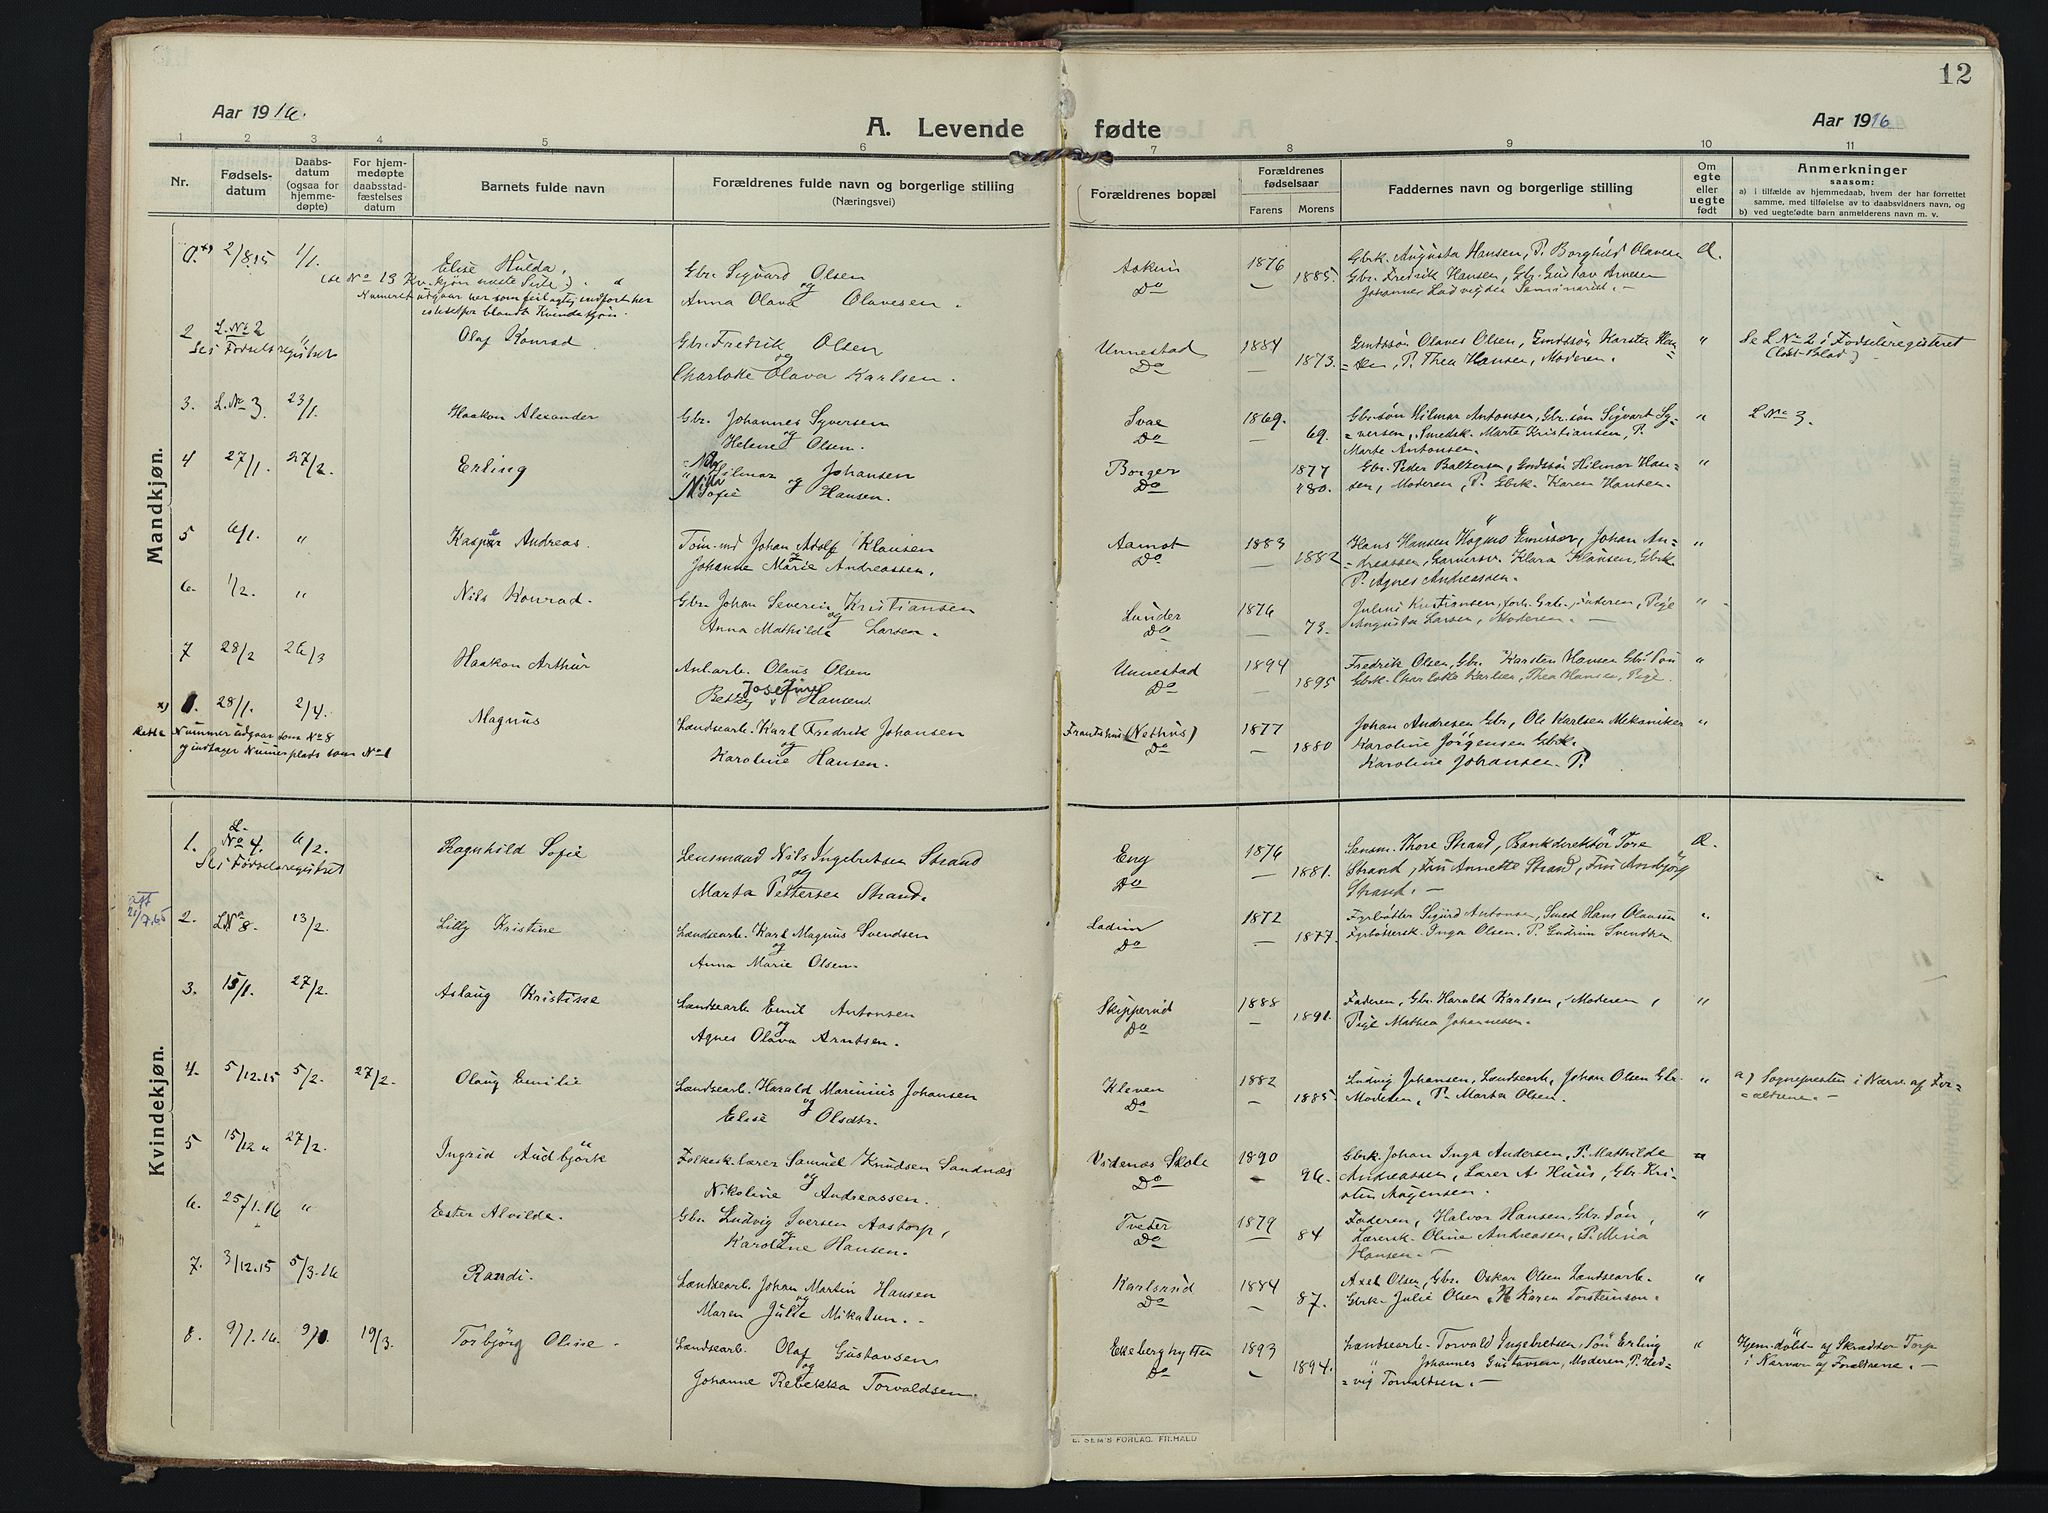 12
Aar 1916.
A. Levende fødte
Aar 1916
1 2 3 4 5 6 7 8 9 10 11
Nr.
Fødsels-
datum
Daabs-
datum
(ogsaa for
hjemme-
døpte)
For hjem-
medøpte
daabsstad-
fæstelses
datum
Barnets fulde navn
Forældrenes fulde navn og borgerlige stilling
(Næringsvei)
Forældrenes bopæl
Forældrenes
fødselsaar
Farens Morens
Faddernes navn og borgerlige stilling
Om
egte
eller
uegte
født
Anmerkninger
saasom:
a) i tilfælde av hjemmedaab, hvem der har forrettet
samme, med tilføielse av to daabsvidners navn, og
b) ved uegtefødte barn anmelderens navn m. v.
Mandkjøn.
2/8.15 1/1.
Elise Hulda,
(se No 13 Kv.kjøn næste Side)
Numeret utgaar her som feilagtig indført her
istedetfor blandt Kvindekjøn.
Gbr. Sigvard Olsen
og
Anna Olava Olavesen.
Do
1876 1885.
Gbrk. Augusta Hansen, P. Borghild Olavesen
Gbr. Fredrik Hansen, Gbr. Gustav Arnesen
Johannes Hadvigder Seminarist.-
2 L. No 2 "
Se i Fødselsregistret
Olaf Konrad
Gbr. Fredrik Olsen
og
Charlotte Olava Karlsen.
Unnestad
Do
1884 1873.
Gmdssøn Olaves Olsen, Gmdssøn Karsten Han=
=sen, P. Thea Hansen, Moderen.
"
Se L No 2 i Fødselsregisteret
(Løst Blad)
3. L. No 3. 23/1.
Haakon Alexander
Gbr. Johannes Syversen
og
Helene Olsen.
Svae
Do
1869. 69.
Gbr.søn Hilmar Antonsen, Gbr. søn Sigvart Sy=
=versen, Smedsk. Marta Kristiansen, P.
Marte Antonsen.
"
L No 3.
4 27/1. 27/2.
Erling
Hilmar Johansen
og
Sofie Hansen.
Borger
Do
1877 1880.
Gbr. Peder Baltzersen, Gmdssøn Hilmar Han=
sen, Moderen, P. Gbrk. Karen Hansen.
"
5 6/1. "
Kasper Andreas.
Tøm.md Johan Adolf Klausen
Johanne Marie Andreassen.
Aamot
Do
1883 — 1882
Hans Hansen Høgmo Emissør, Johan An=
=dreassen, Garversv. Klara Klausen, Gbrk.
P. Agnes Andreassen.
"
6. 1/2. "
Nils Konrad.
Gbr. Johan Severin Kristiansen
og
Anna Mathilde Larsen.
Lunder
Do
1876 — 73.
Julius Kristiansen, forh. Gbr., Faderen, Pige
Augusta Larsen, Moderen.-
"
7 28/2 26/3
Haakon Arthur
Anl.arb. Olaus Olsen
og
Betzy Josefine Hansen.
Unnestad
Do
1894 1895
Fredrik Olsen, Gbr. Karsten Hansen Gbr. Søn
Gbrk. Charlotte Karlsen, Thea Hansen, Pige.
"
x) 1. 28/1. 2/4.
Nummer utgaar som No 8
og indtager Nummerplads som No 1
Magnus
Landsearb. Karl Fredrik Johansen
og
Karoline Hansen.
(Nethus)
Do
1877 — 1880
Johan Andresen Gbr, Ole Karlsen Mekaniker
Karoline Jørgensen Gbrk.
Karoline Johansen. P.
"
Kvindekjøn.
1. L. No 4. 6/2.
Se i Fødselsregistret
Ragnhild Sofie
Lensmand Nils Ingebretsen Strand
og
Marta Pettersen Strand.
Eng
Do
1876 — 1881.
Lensm. Thore Strand, Bankdirektør Tore
Strand, Fru Annette Strand, Fru Anbjørg
Strand.-
Æ.
att
21/7.65
2. L No 8. 13/2.
Lilly Kristine
Landsearb. Karl Magnus Svendsen
og
Anna Marie Olsen.
Ladim
Do
1872 — 1877.
Fyrbøtter Sigurd Antonsen, Smed Hans Olaussen
Fyrbøttersk. Inga Olsen. P. Gudrun Svendsen
"
3. 15/1. 27/2.
Aslaug Kristine
Landsearb. Emil Antonsen
og
Agnes Olava Arntsen.
Skipperud
Do
1888 — 1891.
Faderen, Gbr. Harald Karlsen, Moderen,
Pige Mathea Johannesen.
"
4. 5/12.15 5/2. 27/2.
Olaug Emilie
Landsearb. Harald Marinius Johansen
og
Elise Olsdtr.
Kleven
Do
1882 — 1885.
Ludvig Johansen, Landsearb, Johan Olsen Gbr.
Moderen, P. Marta Olsen.
"
a) Sognepresten i Nærv. af For=
=ældrene.-
5 15/12 " 27/2.
Ingrid Audbjørk
Folkesk.lærer Samuel Knudsen Sandnæs
og
Nikoline Andreassen.
Videnæs Skole
Do
1890 - 96.
Gbrk. Johan Inga Andersen, P. Mathilde
Andreassen, Lærer A. Huus, Gbr Kri=
sten Mogensen.
"
6. 25/1.16 "
Ester Alvilde.
Gbr. Ludvig Iversen Aastorp,
og
Karoline Hansen.
Tveter
Do
1879 — 84
Faderen, Halvor Hansen Gbr. Søn,
Lærersk. Oline Andreassen, P. Mina
Hansen.-
"
7. 3/12.15 5/3.16
Randi.
Landsearb. Johan Martin Hansen
og
Maren Julie Mikalsen.-
Karlsrud
Do
1884 — 87.
Axel Olsen, Gbr. Oskar Olsen Landsearb.
Gbrk. Julie Olsen, Karen Torsteinson.
"
8. 9/1.16. 19/3.
Torbjørg Oline.
Landsearb. Olaf Gustavsen
og
Johanne Rebekka Torvaldsen.
Ekeberghytten
Do
1893 — 1894.
Landsearb. Torvald Ingebretsen, Søn Erling
" Johannes Gustavsen, Moderen, P. Hed=
=vig Torvaldsen.-
"
Hjemdøbt af Skrædder Torp
i Nærvær af Forældrene.-
E. SEM'S FORLAG, FR.HALD